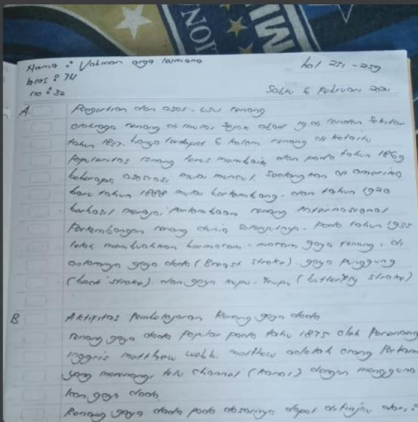 NOI
IM
Nama : Valman arga
hal 251 - 259
klas : 7H
no : 32
Sabtu 6 Februari 2021
A. Pengertian dan asal-usul renang
olahraga renang di mulai sejak abad 19 di
tahun 1837. hanya terdapat 6 kolam renang di
Popularitas renang terus membaik dan pada tahun 1869
beberapa asosiasi mulai muncul Sedangkan di amerika
baru tahun 1888 mulai berkembang. dan tahun 1920
berhasil renang internasional
Perkembangan renang dunia Selanjutnya. Pada tahun 19
telah membuahkan bermacam-macam gaya renang, di
antaranya gaya dada (Breast stroke). gaya punggung
(back stroke) dan gaya kupu-kupu (butterfly stroke)
B Aktifitas Pembelajaran Renang gaya dada
renang gaya dada popular pada 1875 oleh
inggris matthew webb. matthew adalah orang Pertama
yang (kanal) dengan mengguna
kan gaya dada
Renang gaya dada pada dasarnya dapat ditinjau dari :